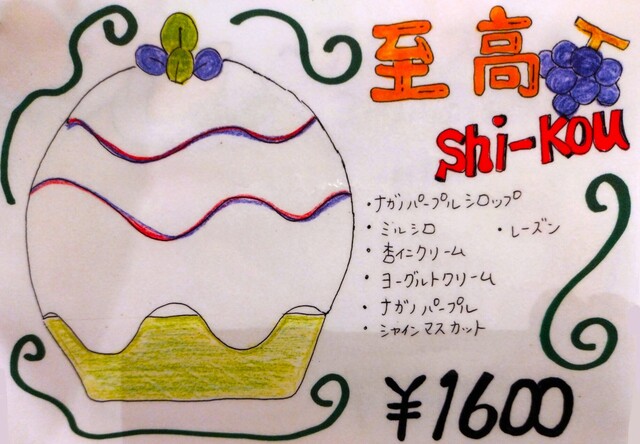 至高
Shi-Kou
・ナガノパープルシロップ
・ミルシロ ・レーズン
・杏仁クリーム
・ヨーグルトクリーム
・ナガノパープル
・シャインマスカット
¥1600